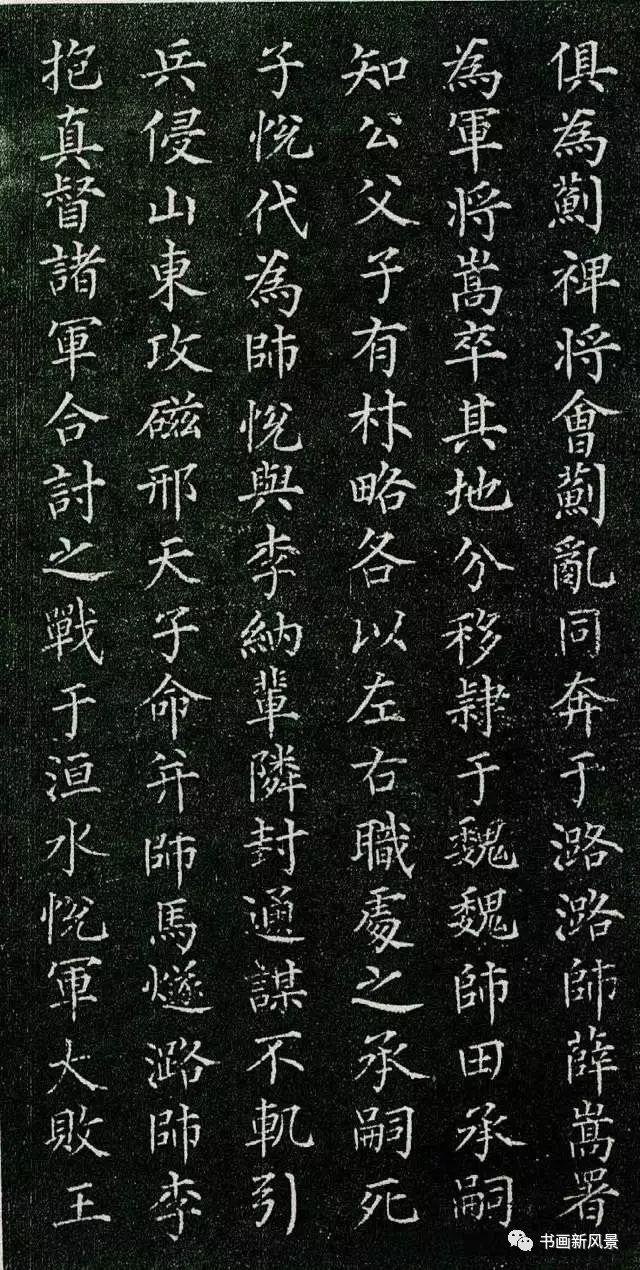 俱為薊裨將會薊亂同奔于潞潞師薛嵩署
為軍將嵩卒其地分移隸于魏魏師田承嗣
知公父子有材略各以左右職處之承嗣死
子悅代為師悅與李納輩隣封通謀不軌引
兵侵山東攻磁邢天子命并師馬燧潞師李
抱真督諸軍合討之戰于洹水悅軍大敗王
书画新风景